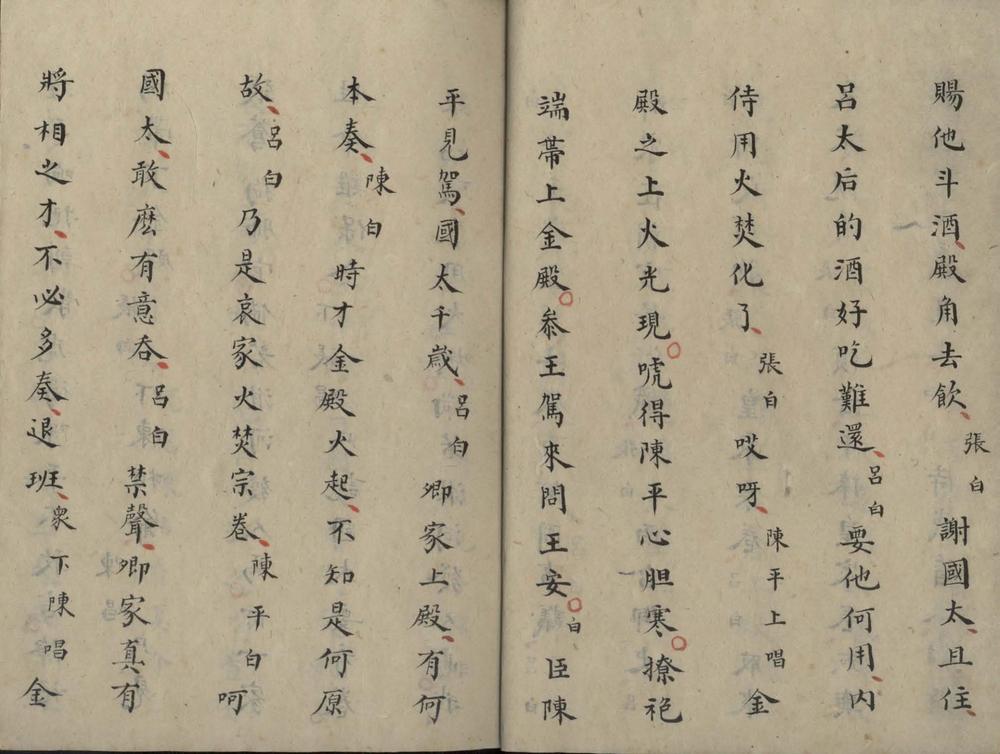 賜他斗酒、殿角去飲、張白 謝國太、且住、
呂太后的酒好吃難還、呂白 要他何用、內
侍用火焚化了、張白 哎呀、陳平上唱 金
殿之上火光現○唬得陳平心胆寒○撩袍
端帶上金殿○叅王駕來問王安○白 臣陳
平見駕、國太千歲、呂白 卿家上殿、有何
本奏、陳白 時才金殿火起、不知是何原
故、呂白 乃是哀家火焚宗卷、陳平白 呵
國太、敢麽有意吞、呂白 禁聲、卿家真有
將相之才、不必多奏、退班、衆下陳唱 金